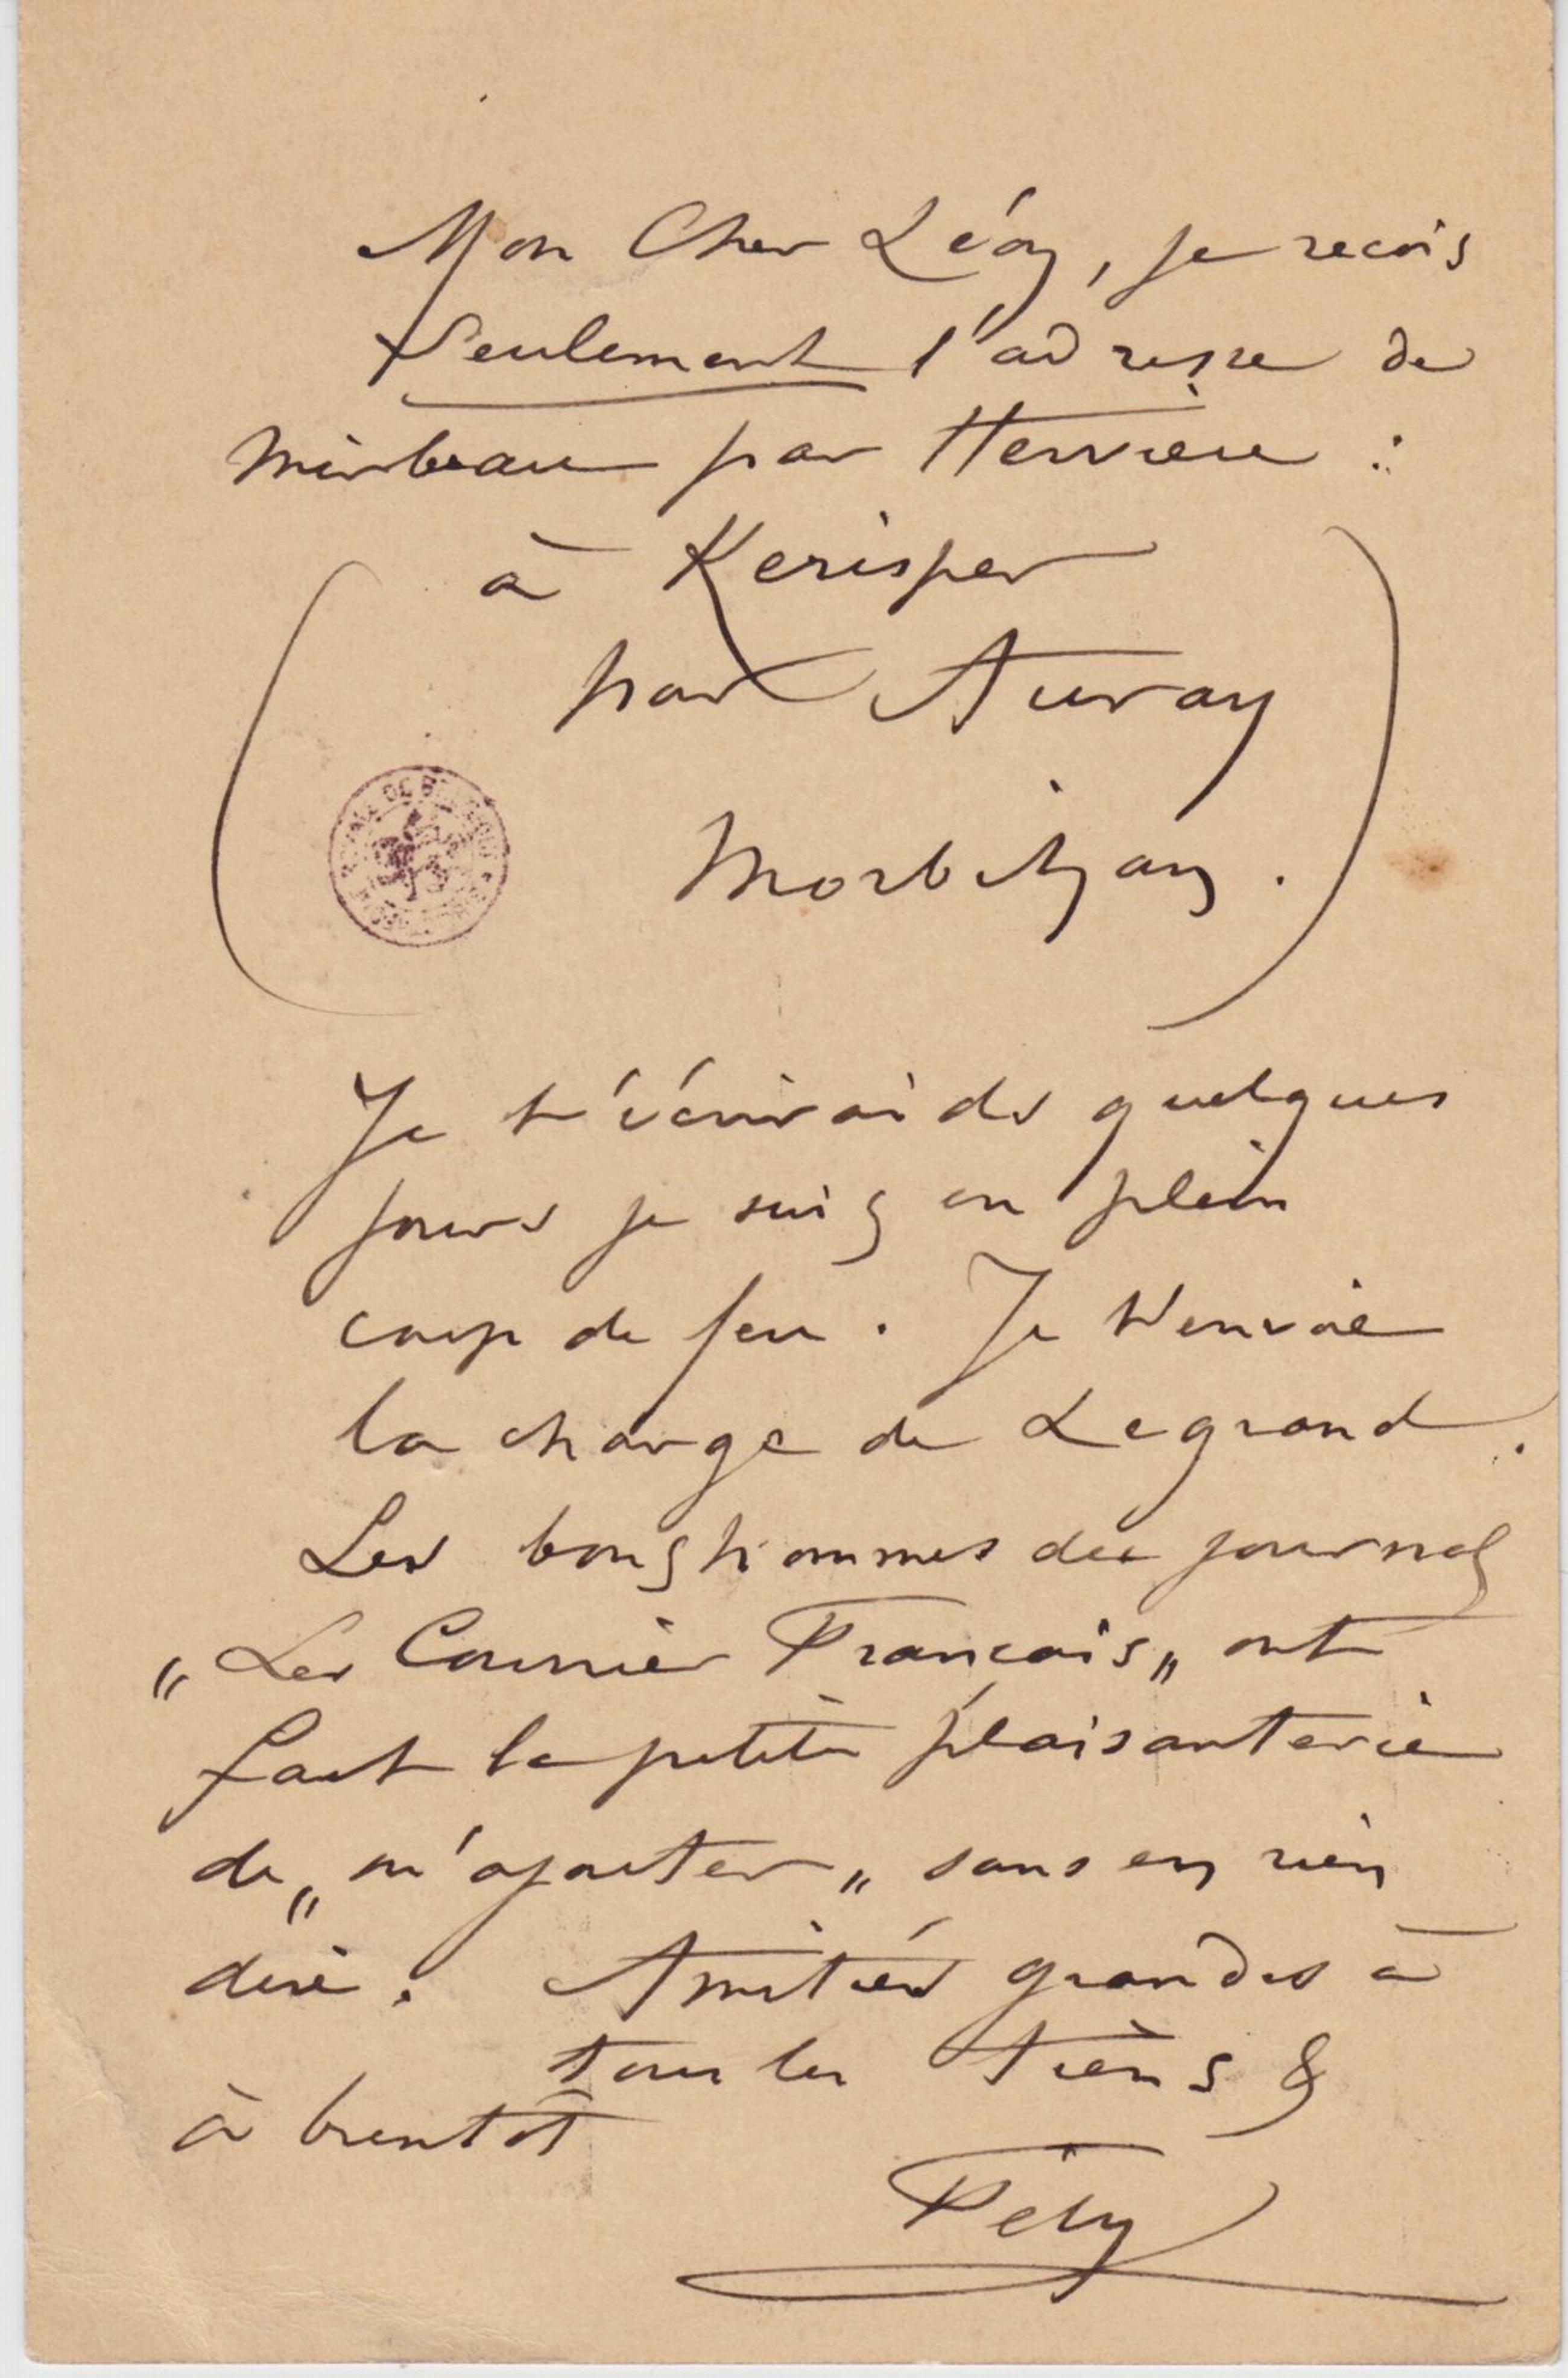 Mon Cher Léon, je recois
Seulement l'adresse de
Mirbeau par Hervieu :
à Kerisper
par Auray
Morbihan.
Je t'écrirai ds quelques
jours je suis en plein
coup de feu. Je t'envoie
la charge de Legrand.
Les bonshommes du journal
„Le Courrier Francais„ ont
fait la petite plaisanterie
de „m'ajouter„ sans en rien
dire. Amitiés grandes à
tous les tiens &
à bientôt
Fély